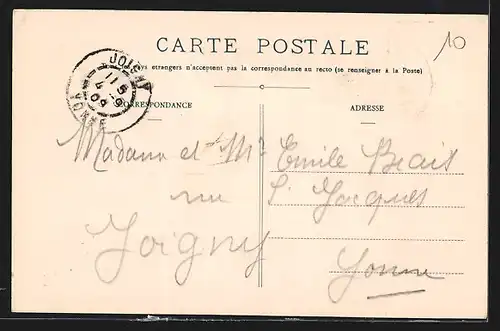 10
CARTE POSTALE
pays étrangers n'acceptent pas la correspondance au recto (se renseigner à la Poste)
JOIGNY
YONNE
CORRESPONDANCE
ADRESSE
Madame et Mr Emile
rue St Jacques
Joigny
Yonne